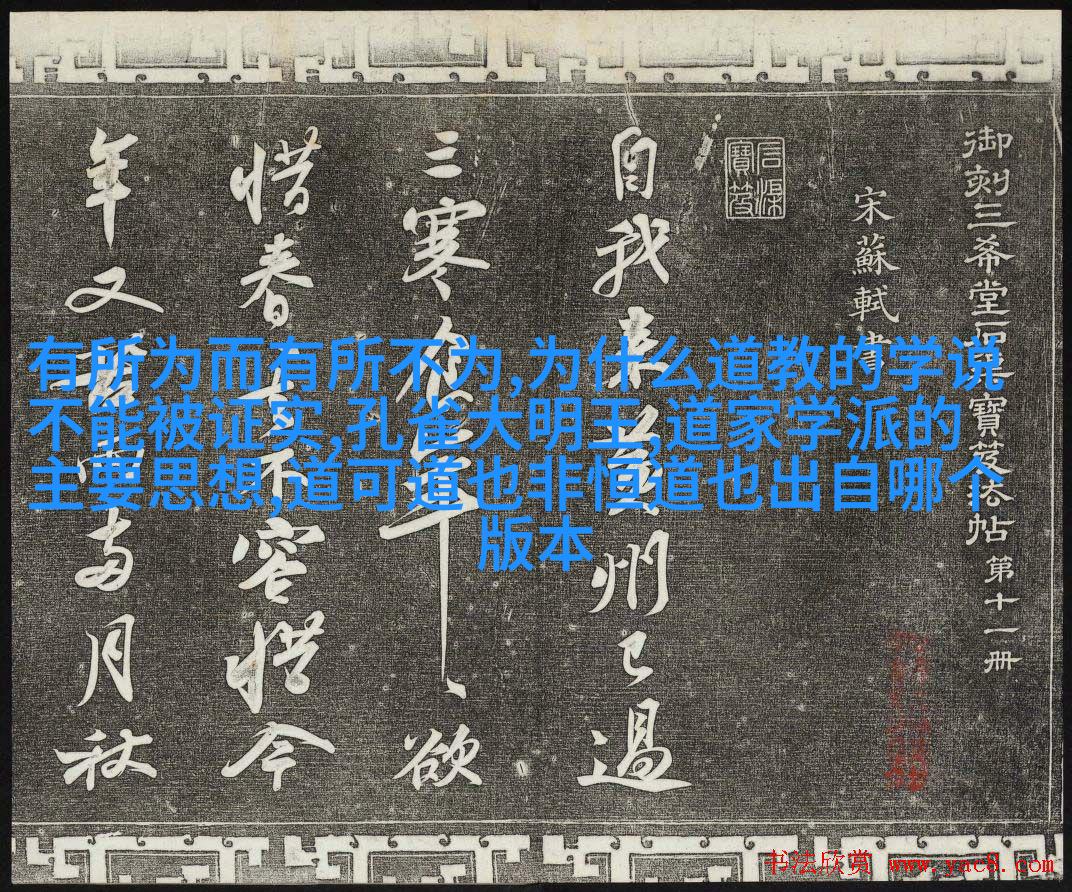 有所为而有所不为,为什么道教的学说
不能被证实,孔雀大明王,道家学派的
主要思想,道可道也非恒道也出自哪个
版本
御刻三希堂石渠寶笈法帖 第十一册
宋蘇軾書
石渠寶笈
自我来黄州已過
三寒食年〻欲
惜春春去不容惜今
年又苦雨两月秋
书法欣赏 www.yac8.com